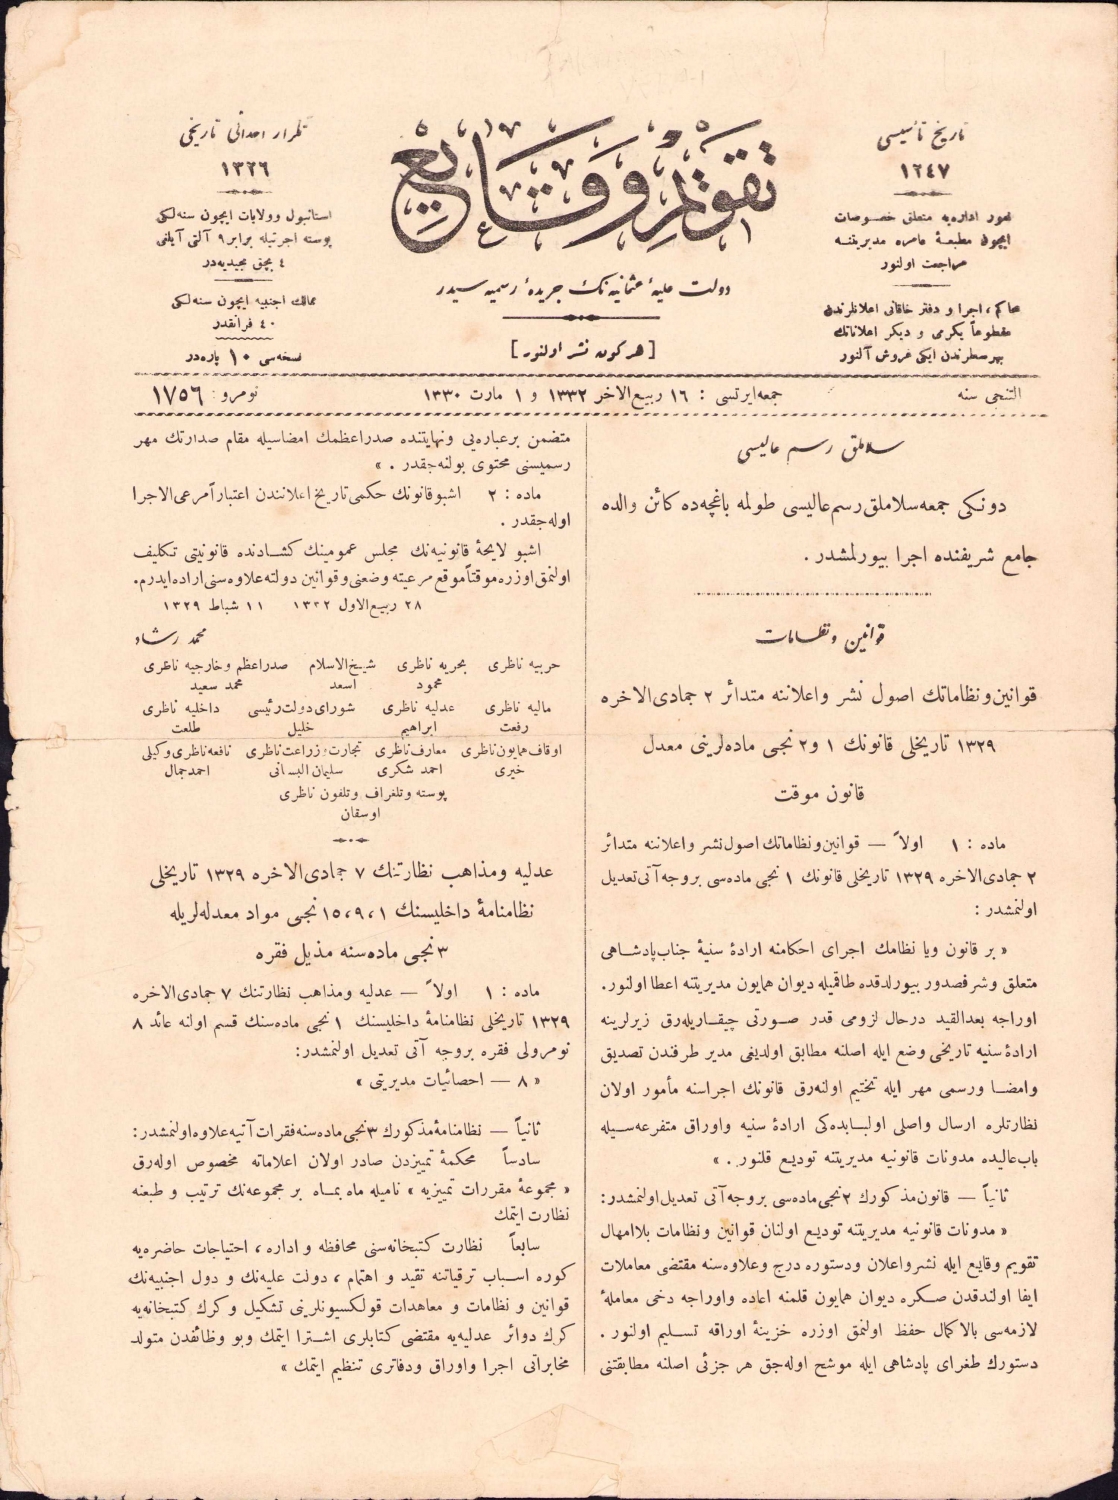 تاریخ تأسیسی
١٢٤٧
امور اداره‌یه متعلق خصوصات
ایچون مطبعهٔ عامره مدیریتنه
مراجعت اولنور
محاکم، اجرا و دفتر خاقانی اعلانلرندن
مقطوعاً یکرمی و دیکر اعلاناتك
بهر سطرندن ایکی غروش آلنور
تقویم وقایع
دولت علیهٔ عثمانیه‌نك جریدهٔ رسمیه سیدر
[ هر کون نشر اولنور ]
تکرار احداثی تاریخی
١٣٢٦
استانبول و ولایات ایچون سنه‌لکی
پوسته اجرتیله برابر ٩ آلتی آیلغی
٤ بچق مجیدیه‌در
ممالك اجنبیه ایچون سنه‌لکی
٤٠ فرانقدر
نسخه‌سی ١٠ پاره‌در
التنجی سنه
جمعه‌ایرتسی : ١٦ ربیع‌الاخر ١٣٣٢ و ١ مارت ١٣٣٠
نومرو: ١٧٥٦
سلاملق رسم عالیسی
دونکی جمعه سلاملق رسم عالیسی طولمه باغچه‌ده کائن والده
جامع شریفنده اجرا بیورلمشدر .
قوانین و نظامات
قوانین و نظاماتك اصول نشر و اعلاننه متدائر ٢ جمادی‌الاخره
١٣٢٩ تاریخلی قانونك ١ و٢ نجی ماده‌لرینی معدل
قانون موقت
ماده : ١ اولاً — قوانین و نظاماتك اصول نشر و اعلاننه متدائر
٢ جمادی‌الاخره ١٣٢٩ تاریخلی قانونك ١ نجی ماده‌سی بروجه آتی تعدیل
اولنمشدر :
« بر قانون ویا نظامك اجرای احکامنه ارادهٔ سنیهٔ جناب پادشاهی
متعلق و شرفصدور بیورلدقده طاقمیله دیوان همایون مدیریتنه اعطا اولنور.
اوراجه بعدالقید درحال لزومی قدر صورتی چیقاریله‌رق زیرلرینه
ارادهٔ سنیه تاریخی وضع ایله اصلنه مطابق اولدیغی مدیر طرفندن تصدیق
وامضا ورسمی مهر ایله تختیم اولنه‌رق قانونك اجراسنه مأمور اولان
نظارتلره ارسال واصلی اولبابده‌کی ارادهٔ سنیه واوراق متفرعه‌سیله
باب‌عالیده مدونات قانونیه مدیریتنه تودیع قلنور . »
ثانیاً — قانون مذکورك ٢ نجی ماده‌سی بروجه آتی تعدیل اولنمشدر:
« مدونات قانونیه مدیریتنه تودیع اولنان قوانین ونظامات بلاامهال
تقویم وقایع ایله نشر واعلان ودستوره درج وعلاوه‌سنه مقتضی معاملات
ایفا اولندقدن صکره دیوان همایون قلمنه اعاده واوراجه دخی معاملهٔ
لازمه‌سی بالاکمال حفظ اولنمق اوزره خزینهٔ اوراقه تسلیم اولنور .
دستورك طغرای پادشاهی ایله موشح اوله‌جق هر جزئی اصلنه مطابقتنی
متضمن بر عباره‌یی ونهایتنده صدراعظمك امضاسیله مقام صدارتك مهر
رسمیسنی محتوی بولنه‌جقدر . »
ماده : ٢ اشبو قانونك حکمی تاریخ اعلانندن اعتباراً مرعی الاجرا
اوله‌جقدر .
اشبو لایحهٔ قانونیه‌نك مجلس عمومینك کشادنده قانونیتی تکلیف
اولنمق اوزره موقتاً موقع مرعیته وضعنی وقوانین دولته علاوه‌سنی اراده ایدرم.
٢٨ ربیع‌الاول ١٣٣٢ ١١ شباط ١٣٢٩
محمد رشاد
حربیه ناظری بحریه ناظری شیخ‌الاسلام صدراعظم وخارجیه ناظری
محمود اسعد محمد سعید
مالیه ناظری عدلیه ناظری شورای دولت رئیسی داخلیه ناظری
رفعت ابراهیم خلیل طلعت
اوقاف همایون ناظری معارف ناظری تجارت وزراعت ناظری نافعه ناظری وکیلی
خیری احمد شکری سلیمان البستانی احمد جمال
پوسته وتلغراف وتلفون ناظری
اوسقان
عدلیه ومذاهب نظارتنك ٧ جمادی‌الاخره ١٣٢٩ تاریخلی
نظامنامهٔ داخلیسنك ١، ٩، ١٥ نجی مواد معدله‌لریله
٣ نجی ماده‌سنه مذیل فقره
ماده : ١ اولاً — عدلیه ومذاهب نظارتنك ٧ جمادی‌الاخره
١٣٢٩ تاریخلی نظامنامهٔ داخلیسنك ١ نجی ماده‌سنك قسم اولنه عائد ٨
نومرولی فقره بروجه آتی تعدیل اولنمشدر:
« ٨ — احصائیات مدیریتی »
ثانیاً — نظامنامهٔ مذکورك ٣ نجی ماده‌سنه فقرات آتیه علاوه اولنمشدر:
سادساً محکمهٔ تمییزدن صادر اولان اعلاماته مخصوص اوله‌رق
« مجموعهٔ مقررات تمییزیه » نامیله ماه بماه بر مجموعه‌نك ترتیب و طبعنه
نظارت ایتمك
سابعاً نظارت کتبخانه‌سنی محافظه و اداره ، احتیاجات حاضره‌یه
کوره اسباب ترقیاتنه تقید و اهتمام ، دولت علیه‌نك و دول اجنبیه‌نك
قوانین و نظامات و معاهدات قولکسیونلرینی تشکیل و کرك کتبخانه‌یه
کرك دوائر عدلیه‌یه مقتضی کتابلری اشترا ایتمك وبو وظائفدن متولد
مخابراتی اجرا واوراق ودفاتری تنظیم ایتمك »